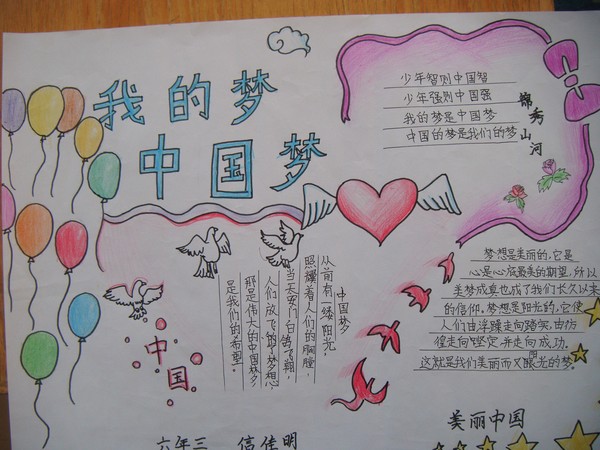 我的梦
中国梦
少年智则中国智
少年强则中国强
我的梦是中国梦
中国的梦是我们的梦
锦秀山河
中国梦
从前有一缕阳光，
照耀着人们的胸膛，
当天安门白鸽飞翔，
人们放飞的梦想，
那是伟大的中国梦乡，
是我们的希望。
中国
梦想是美丽的，它是
心是心底最美的期望，所以
美梦成真也成了我们长久以来
的信仰。梦想是阳光的，它使
人们由浮躁走向踏实，由彷
徨走向坚定，并走向成功。
这就是我们美丽而又阳光的梦。
美丽中国
六年三
佳明